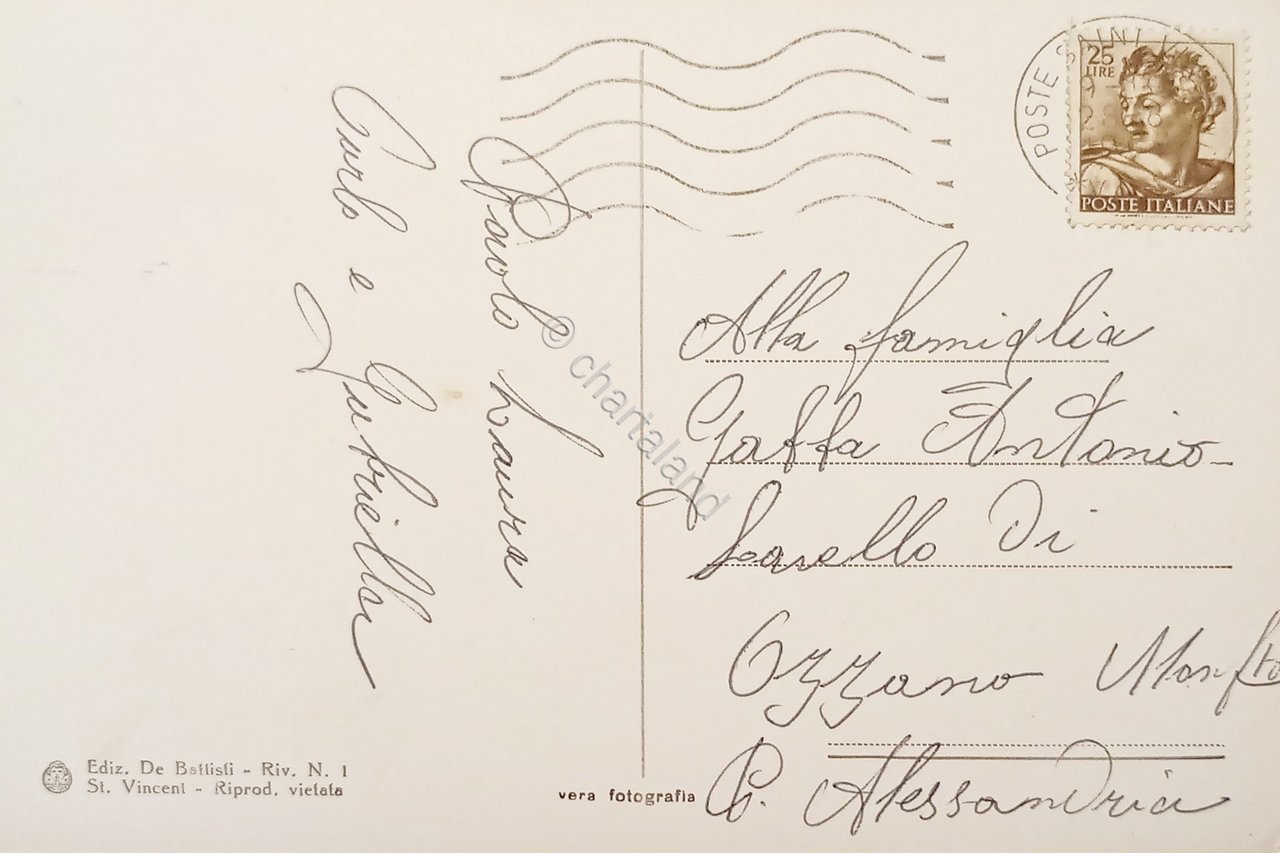 Paolo Laura
Carlo e Gabriella
POSTE SAINT VI
25
LIRE
POSTE ITALIANE
Alla famiglia
Gaffa Antonio
Savello Di
Ozzano Monfto
P. Alessandria
Ediz. De Battisti - Riv. N. 1
St. Vincent - Riprod. vietata
vera fotografia
© chartaland